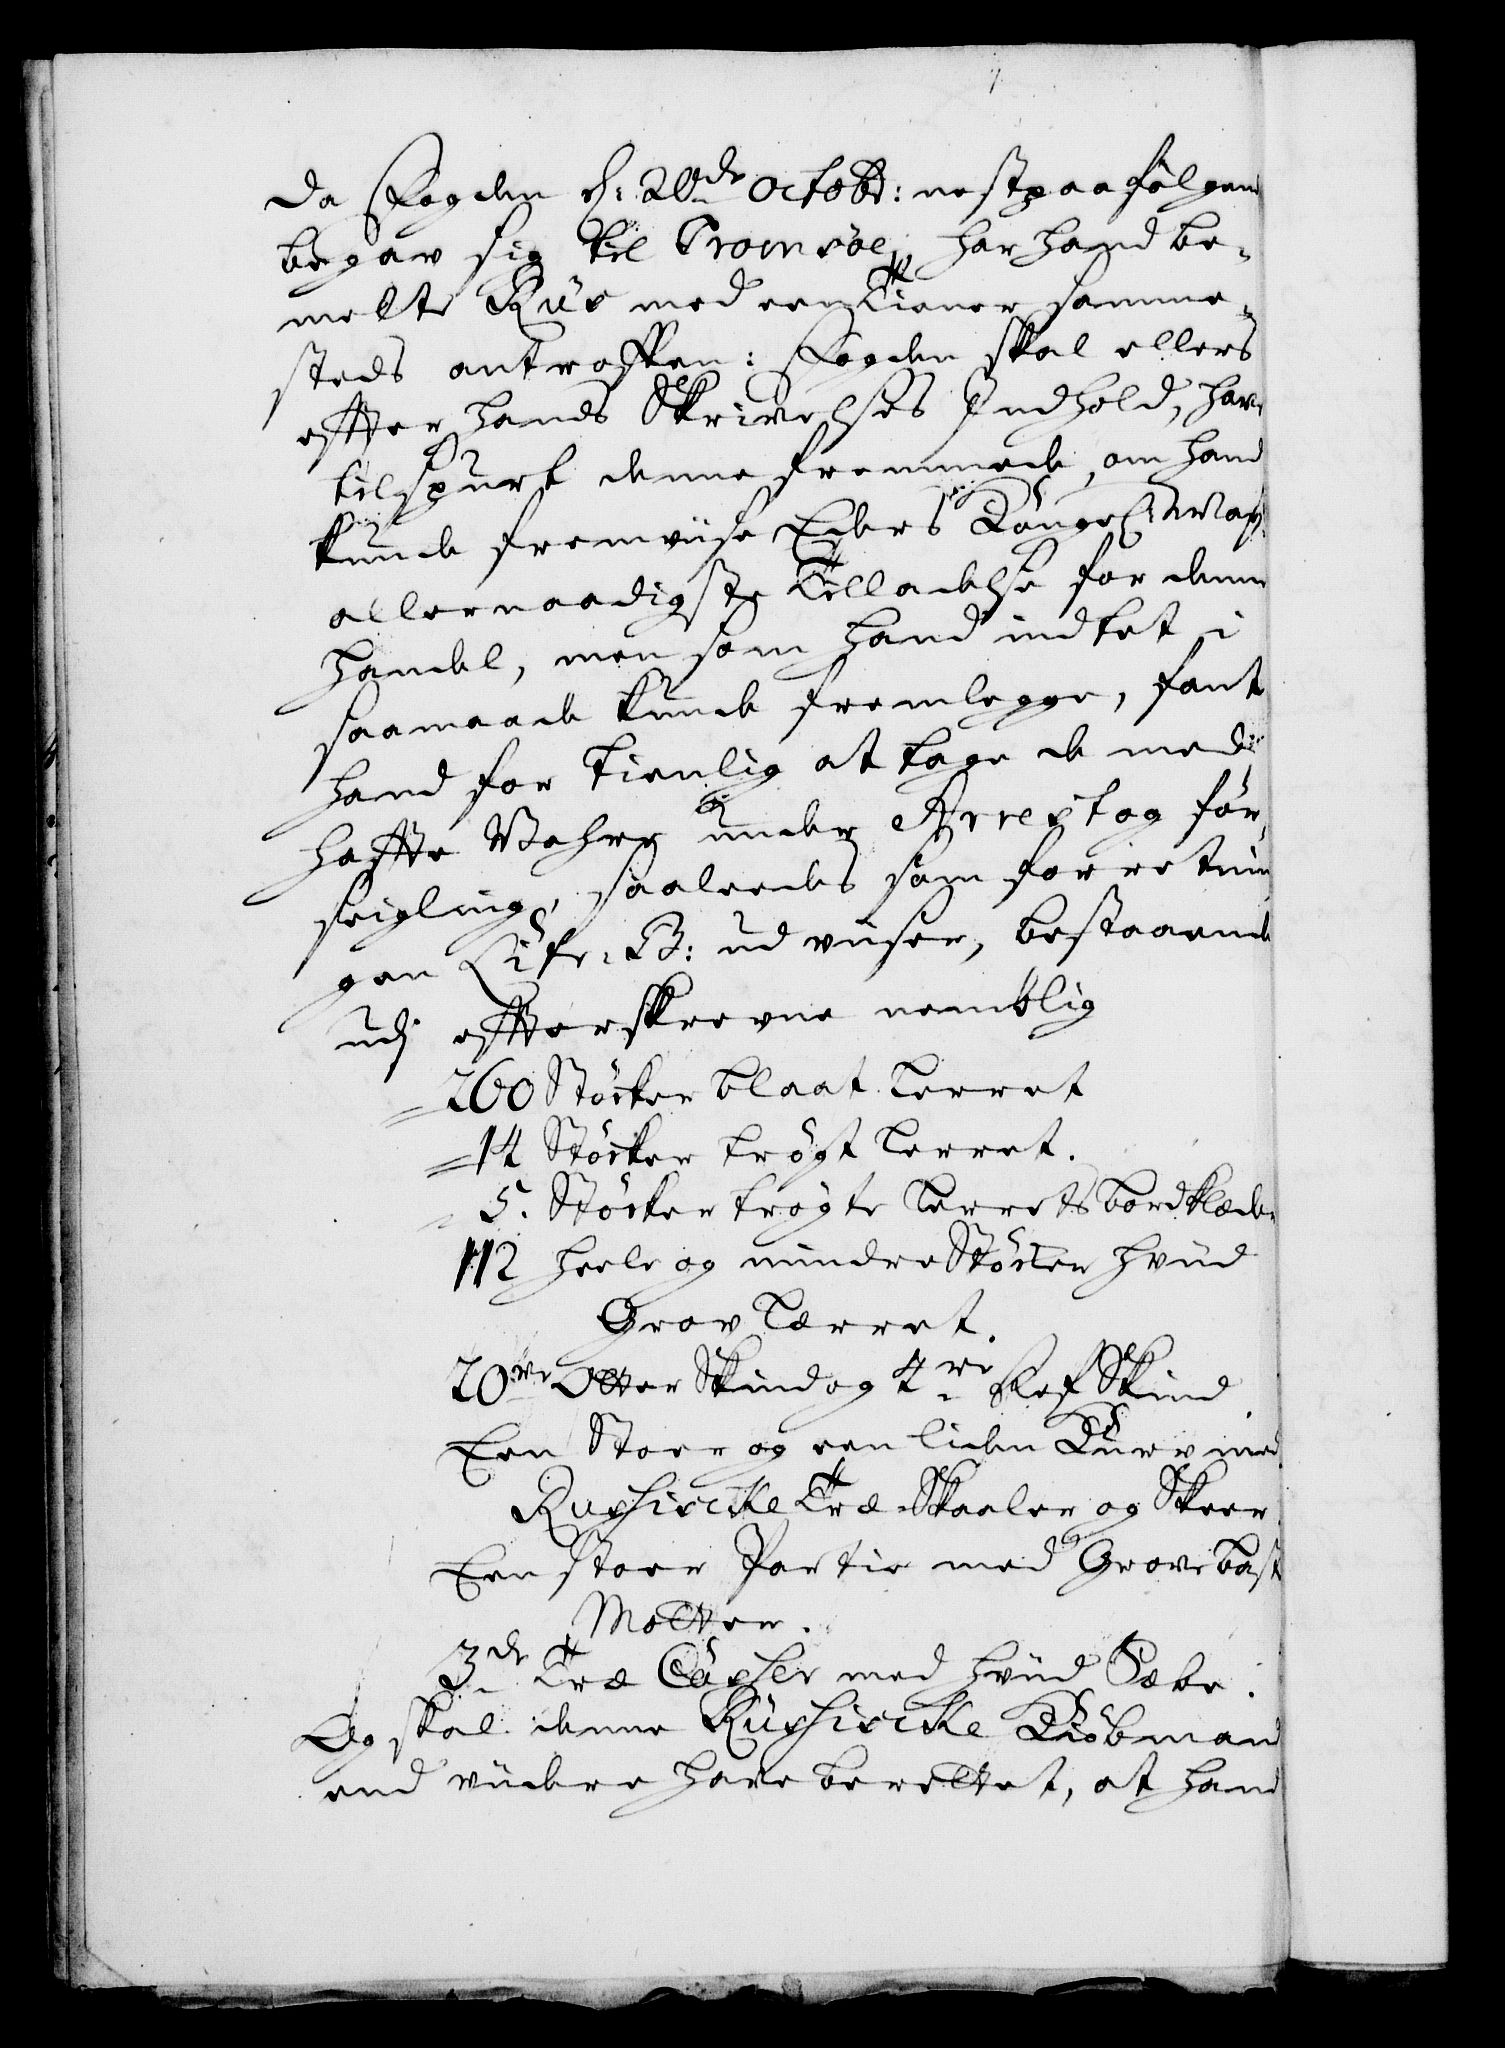 da Fogden d: 20de Octobr: nestpaafølgend
begav sig til Tromsøe, har hand be-
melte Rus med een Tiener samme-
steds antroffen: Fogden skal ellers
effter hands Skrivelses Indhold, have
tilspurt denne fremmede, om hand
kunde fremviise Eders Kongel: May:
allernaadigste Tilladelse for denne
handel, men som hand indtet i
saamaade kunde fremlegge, fant
hand for tienlig at tage de med
haffte Wahre under Arrest og for-
seigling, saaledes som forretnin
gen Litr: B: udviiser, bestaaende
udj effterskrevne nemblig
260 Støcker blaat Lerret
14 Støcker trøgt Lerret.
5. Støcker trøgte Lerrets bordklæder
112 heele og mindre Støcker hviid
Grov Lærret.
20ve Otter Skind og 4re Ref Skind
Een Stoer og een liden Kurv med
Russiscke Træ-Skaaler og Skeer
Een stoer Partie med Grove bast
Matter.
3de Træ Casser med hviid Sæbe.
Og skal denne Russiscke Kiøbmand
end viidere have berettet, at hand